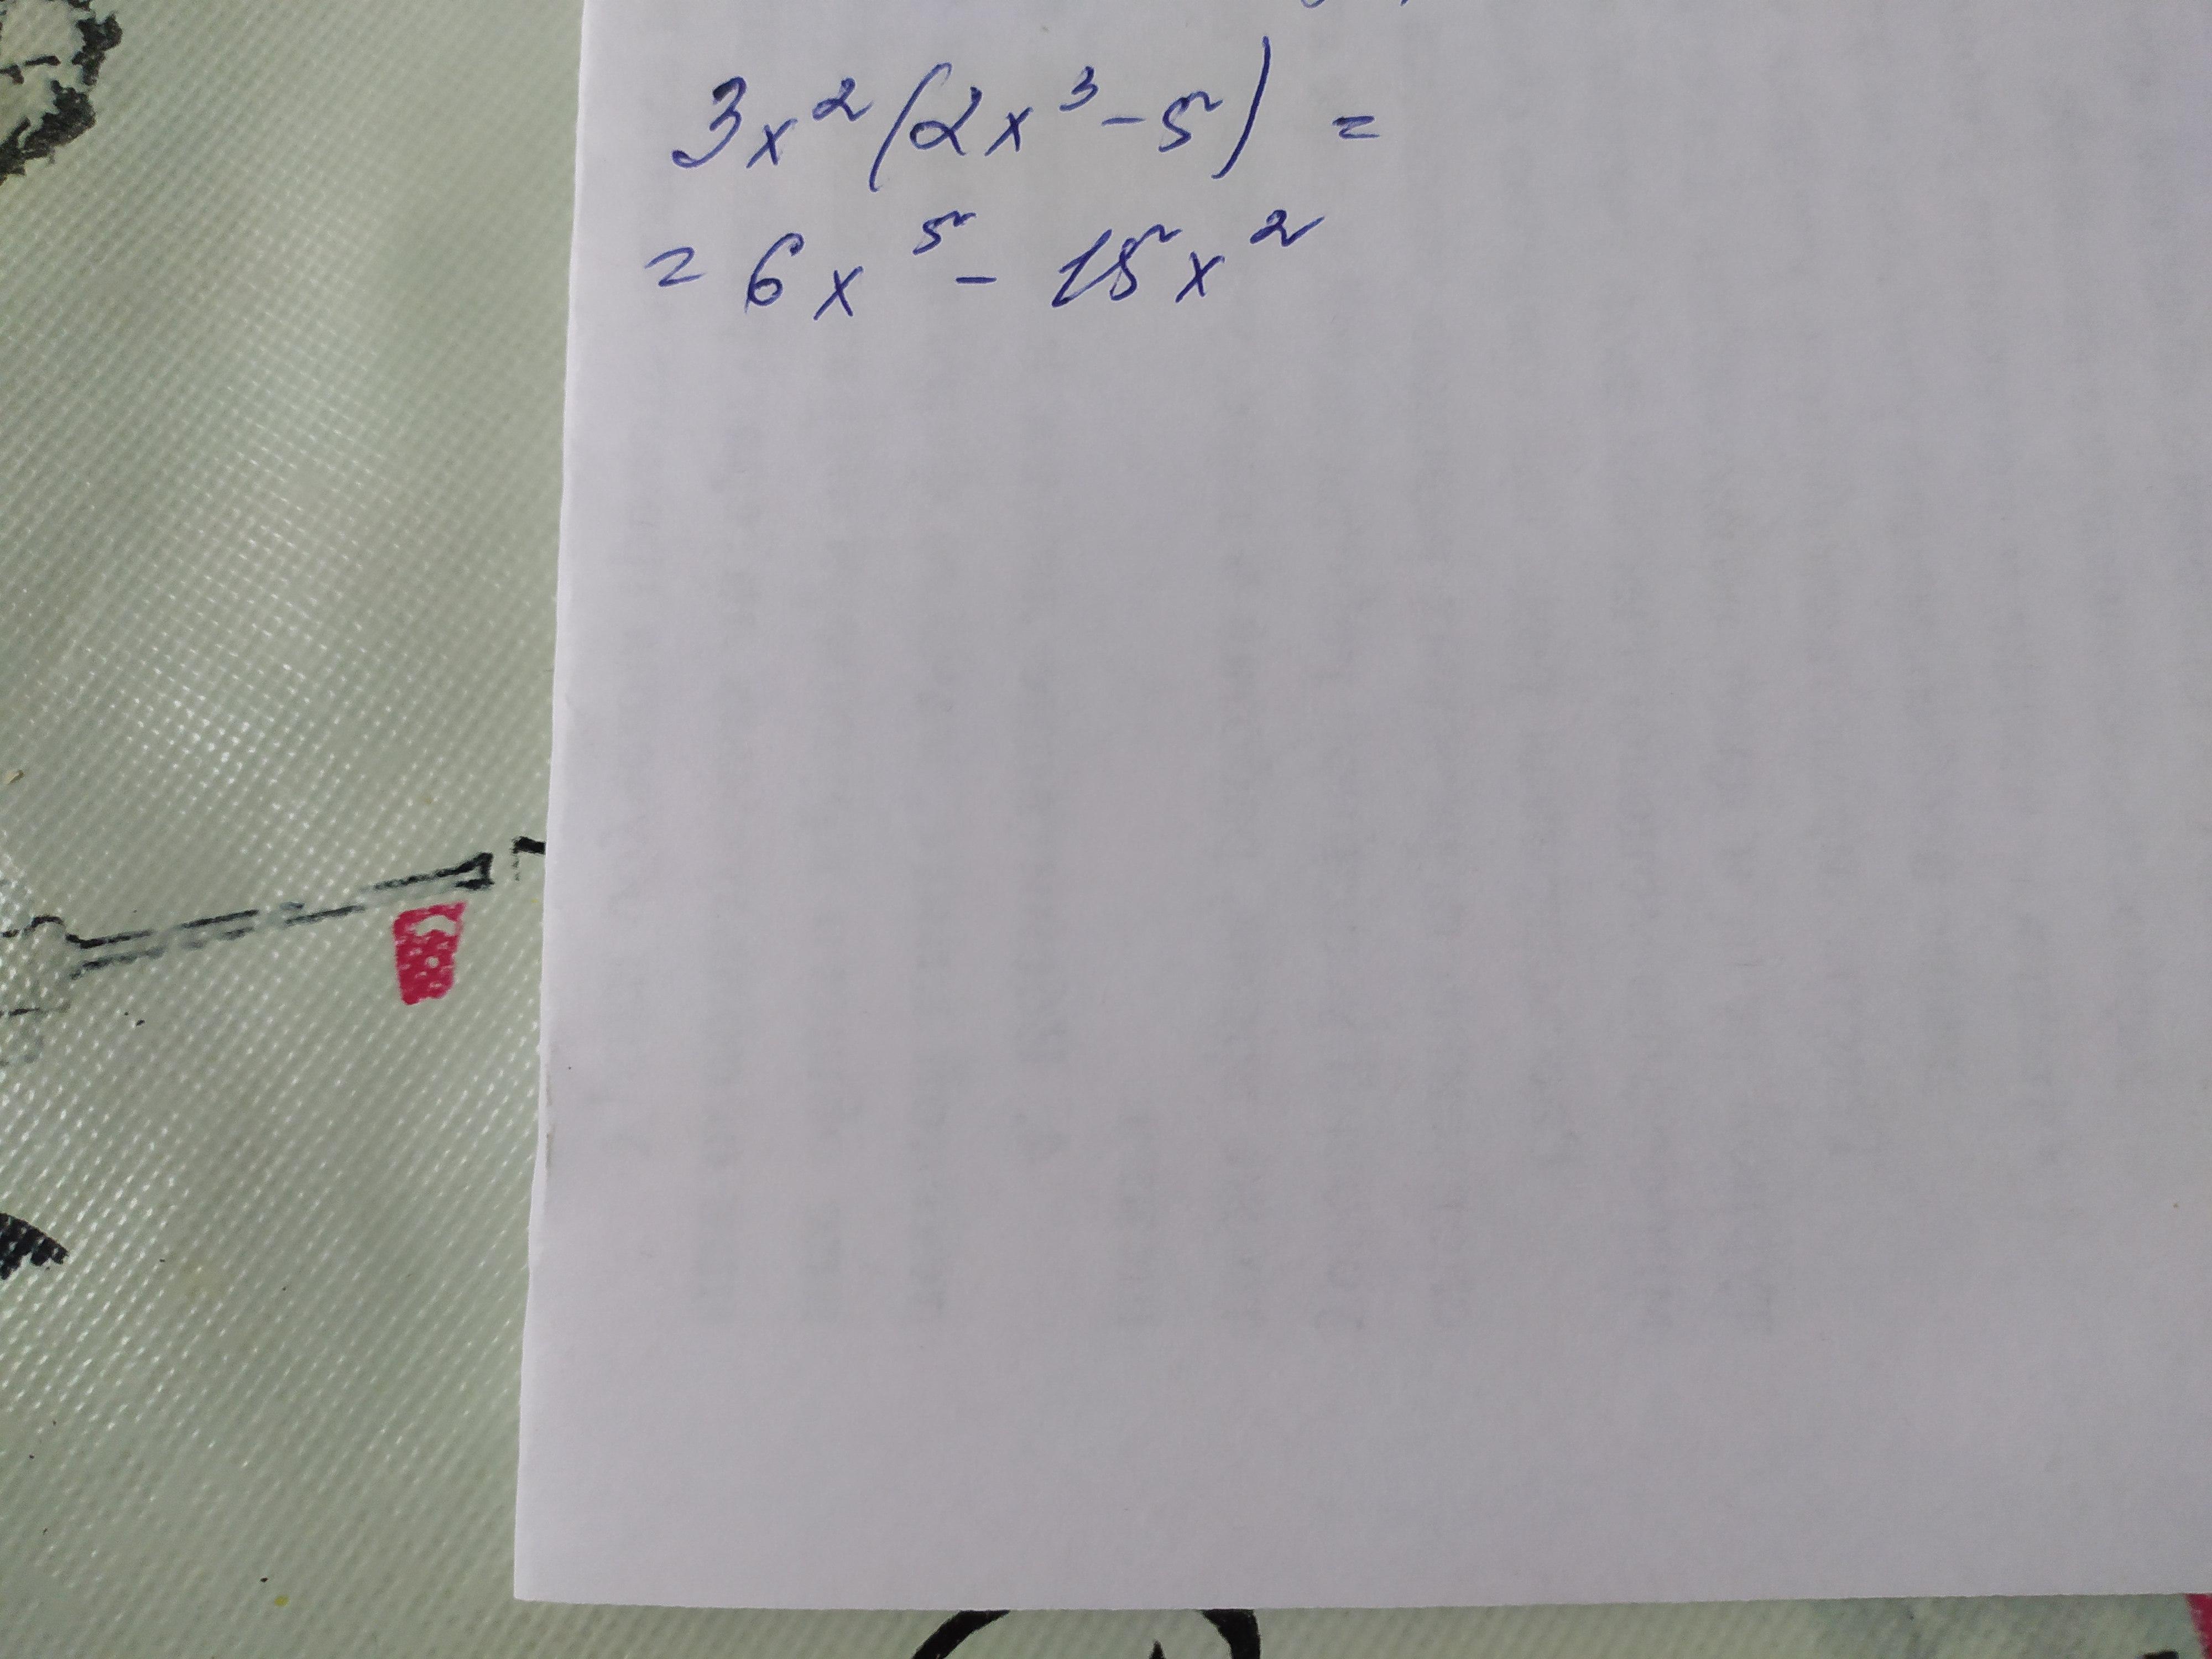 3x²(2x³-5) =
= 6x⁵ - 15x²